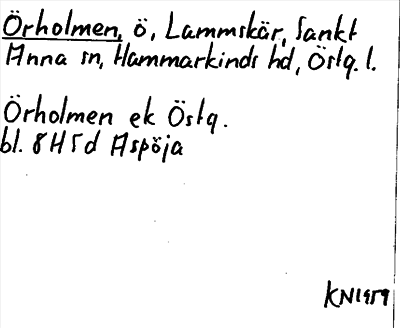 Örholmen, ö, Lammskär, Sankt
Anna sn, Hammarkinds hd, Östg. l.
Örholmen ek Östg.
bl. 8H5d Aspöja
KN1959